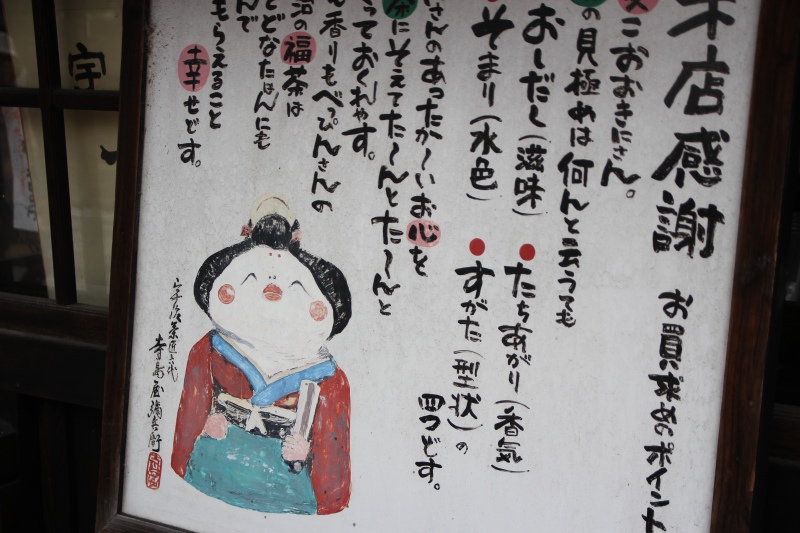 本店感謝
お買求めのポイント
こおおきにさん。
の見極めは何んと云うても
おしだし(滋味)
たちあがり(香気)
そまり(水色)
すがた(型状)の
四つどす。
さんのあったか〜いお心を
茶にそえてた〜んとた〜んと
っておくれやす。
も香りもべっぴんさんの
治の福茶は
とどなたはんにも
んで
もらえること
幸せどす。
宇治茶匠六代
寺島屋彌兵衛
宇